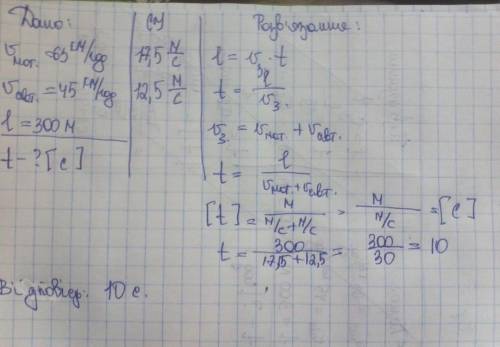 Дано:
υмот. = 63 км/год
υавт. = 45 км/год
l = 300 м
t - ? [c]
(СІ)
17,5 м/с
12,5 м/с
Розв'язання:
l = υ · t
t = l/υз.
υз = υмот + υавт.
t = l/(υмот. + υавт.)
[t] = м/(м/с + м/с) = м/(м/с) = [c]
t = 300/(17,5 + 12,5) = 300/30 = 10
Відповідь: 10 с.